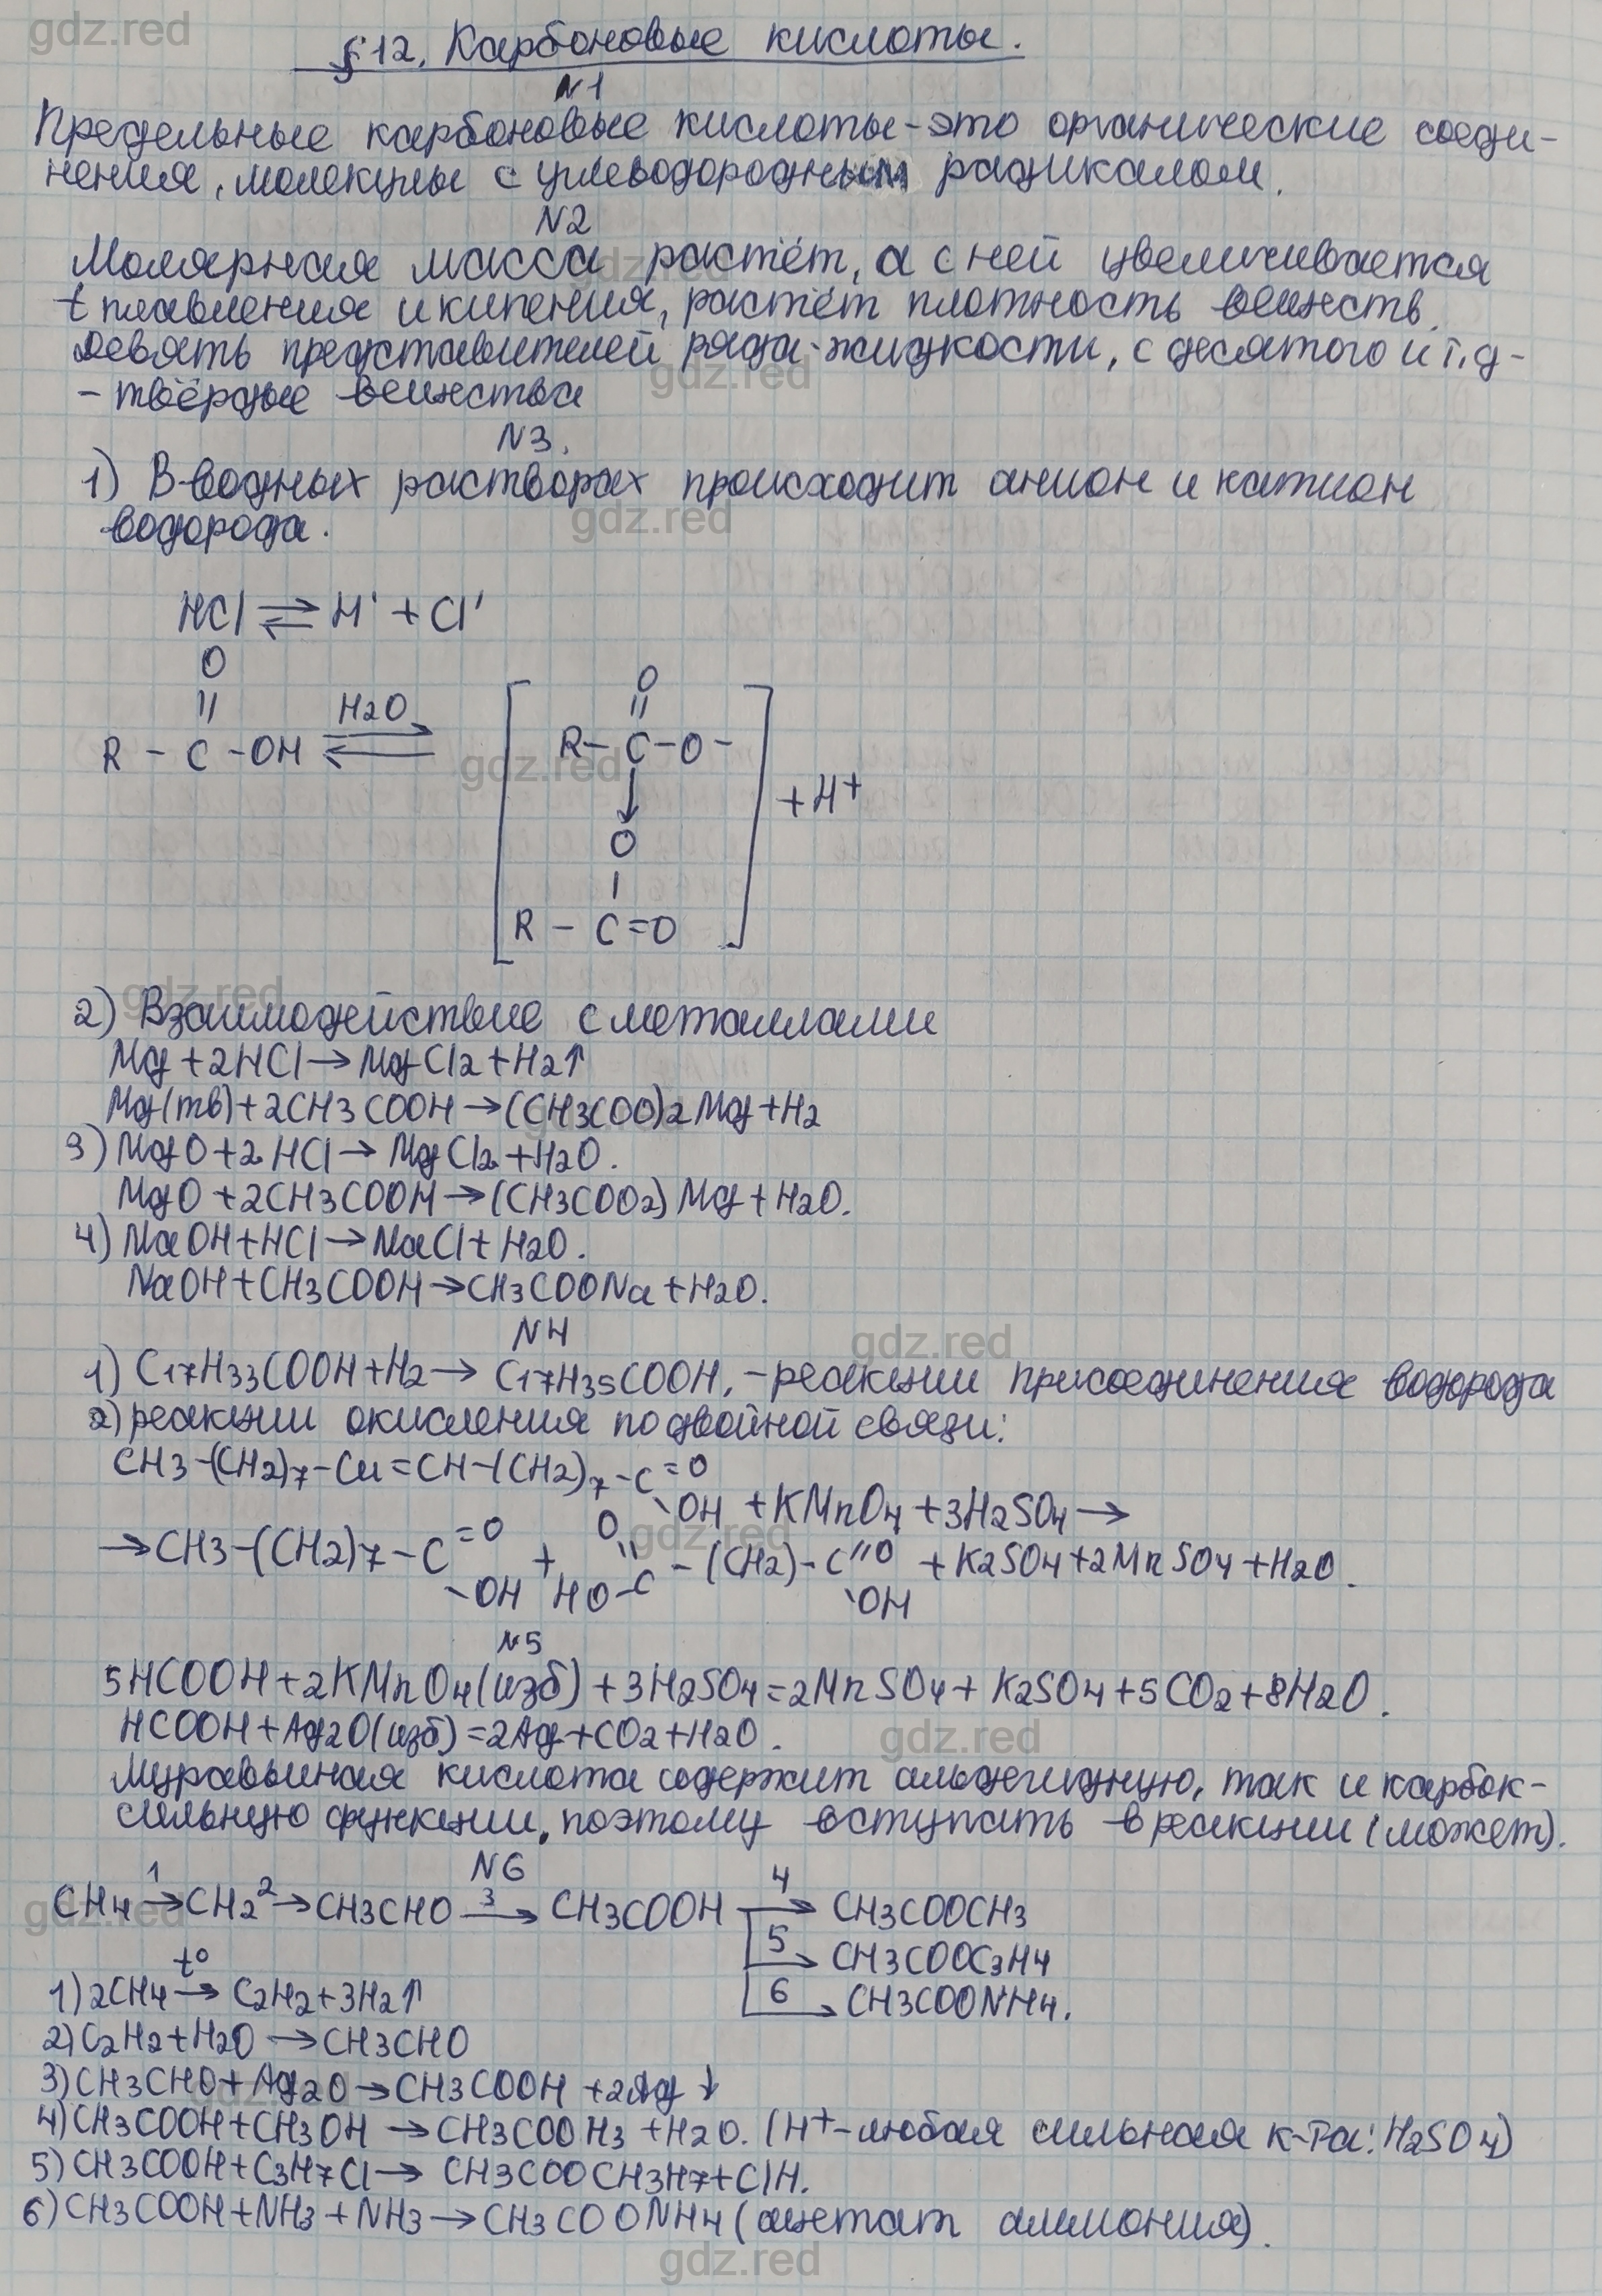 gdz.red
§12. Карбоновые кислоты.
N1
Предельные карбоновые кислоты - это органические соеди-
нения, молекулы с углеводородным радикалом.
N2
Молярная масса растёт, а с ней увеличивается
t плавления и кипения, растёт плотность веществ.
Девять представителей ряда - жидкости, с десятого и т.д -
- твёрдые вещества
N3.
1) В водных растворах происходит анион и катион
водорода.
HCl ⇌ H˙ + Cl'
O
||
R - C - OH ⇌ H2O
[R - C - O -
O
||
↓
O
|
R - C = O] + H+
2) Взаимодействие с металлами
Mg + 2HCl → MgCl2 + H2↑
Mg(тв) + 2CH3COOH → (CH3COO)2Mg + H2
3) MgO + 2HCl → MgCl2 + H2O.
MgO + 2CH3COOH → (CH3COO2)Mg + H2O.
4) NaOH + HCl → NaCl + H2O.
NaOH + CH3COOH → CH3COONa + H2O.
N4
1) C17H33COOH + H2 → C17H35COOH, - реакции присоединения водорода
2) реакции окисления по двойной связи:
CH3-(CH2)7-CH=CH-(CH2)7-C=O
\OH + KMnO4 + 3H2SO4 →
→ CH3-(CH2)7-C=O -OH + O=C HO - (CH2)-C=O \OH + K2SO4 + 2MnSO4 + H2O.
N5
5HCOOH + 2KMnO4(изб) + 3H2SO4 = 2MnSO4 + K2SO4 + 5CO2 + 8H2O.
HCOOH + Ag2O(изб) = 2Ag + CO2 + H2O.
Муравьиная кислота содержит альдегидную, так и карбок-
сильную функции, поэтому вступать в реакции (может).
N6
CH4 1→ CH2 2→ CH3CHO 3→ CH3COOH 4→ CH3COOCH3
5→ CH3COOC3H4
6→ CH3COONH4.
1) 2CH4 t°→ C2H2 + 3H2↑
2) C2H2 + H2O → CH3CHO
3) CH3CHO + Ag2O → CH3COOH + 2Ag↓
4) CH3COOH + CH3OH → CH3COOH3 + H2O. (H+ - любая сильная к-та: H2SO4)
5) CH3COOH + C3H7Cl → CH3COOCH3H7 + ClH.
6) CH3COOH + NH3 + NH3 → CH3COONH4 (ацетат аммония).
gdz.red